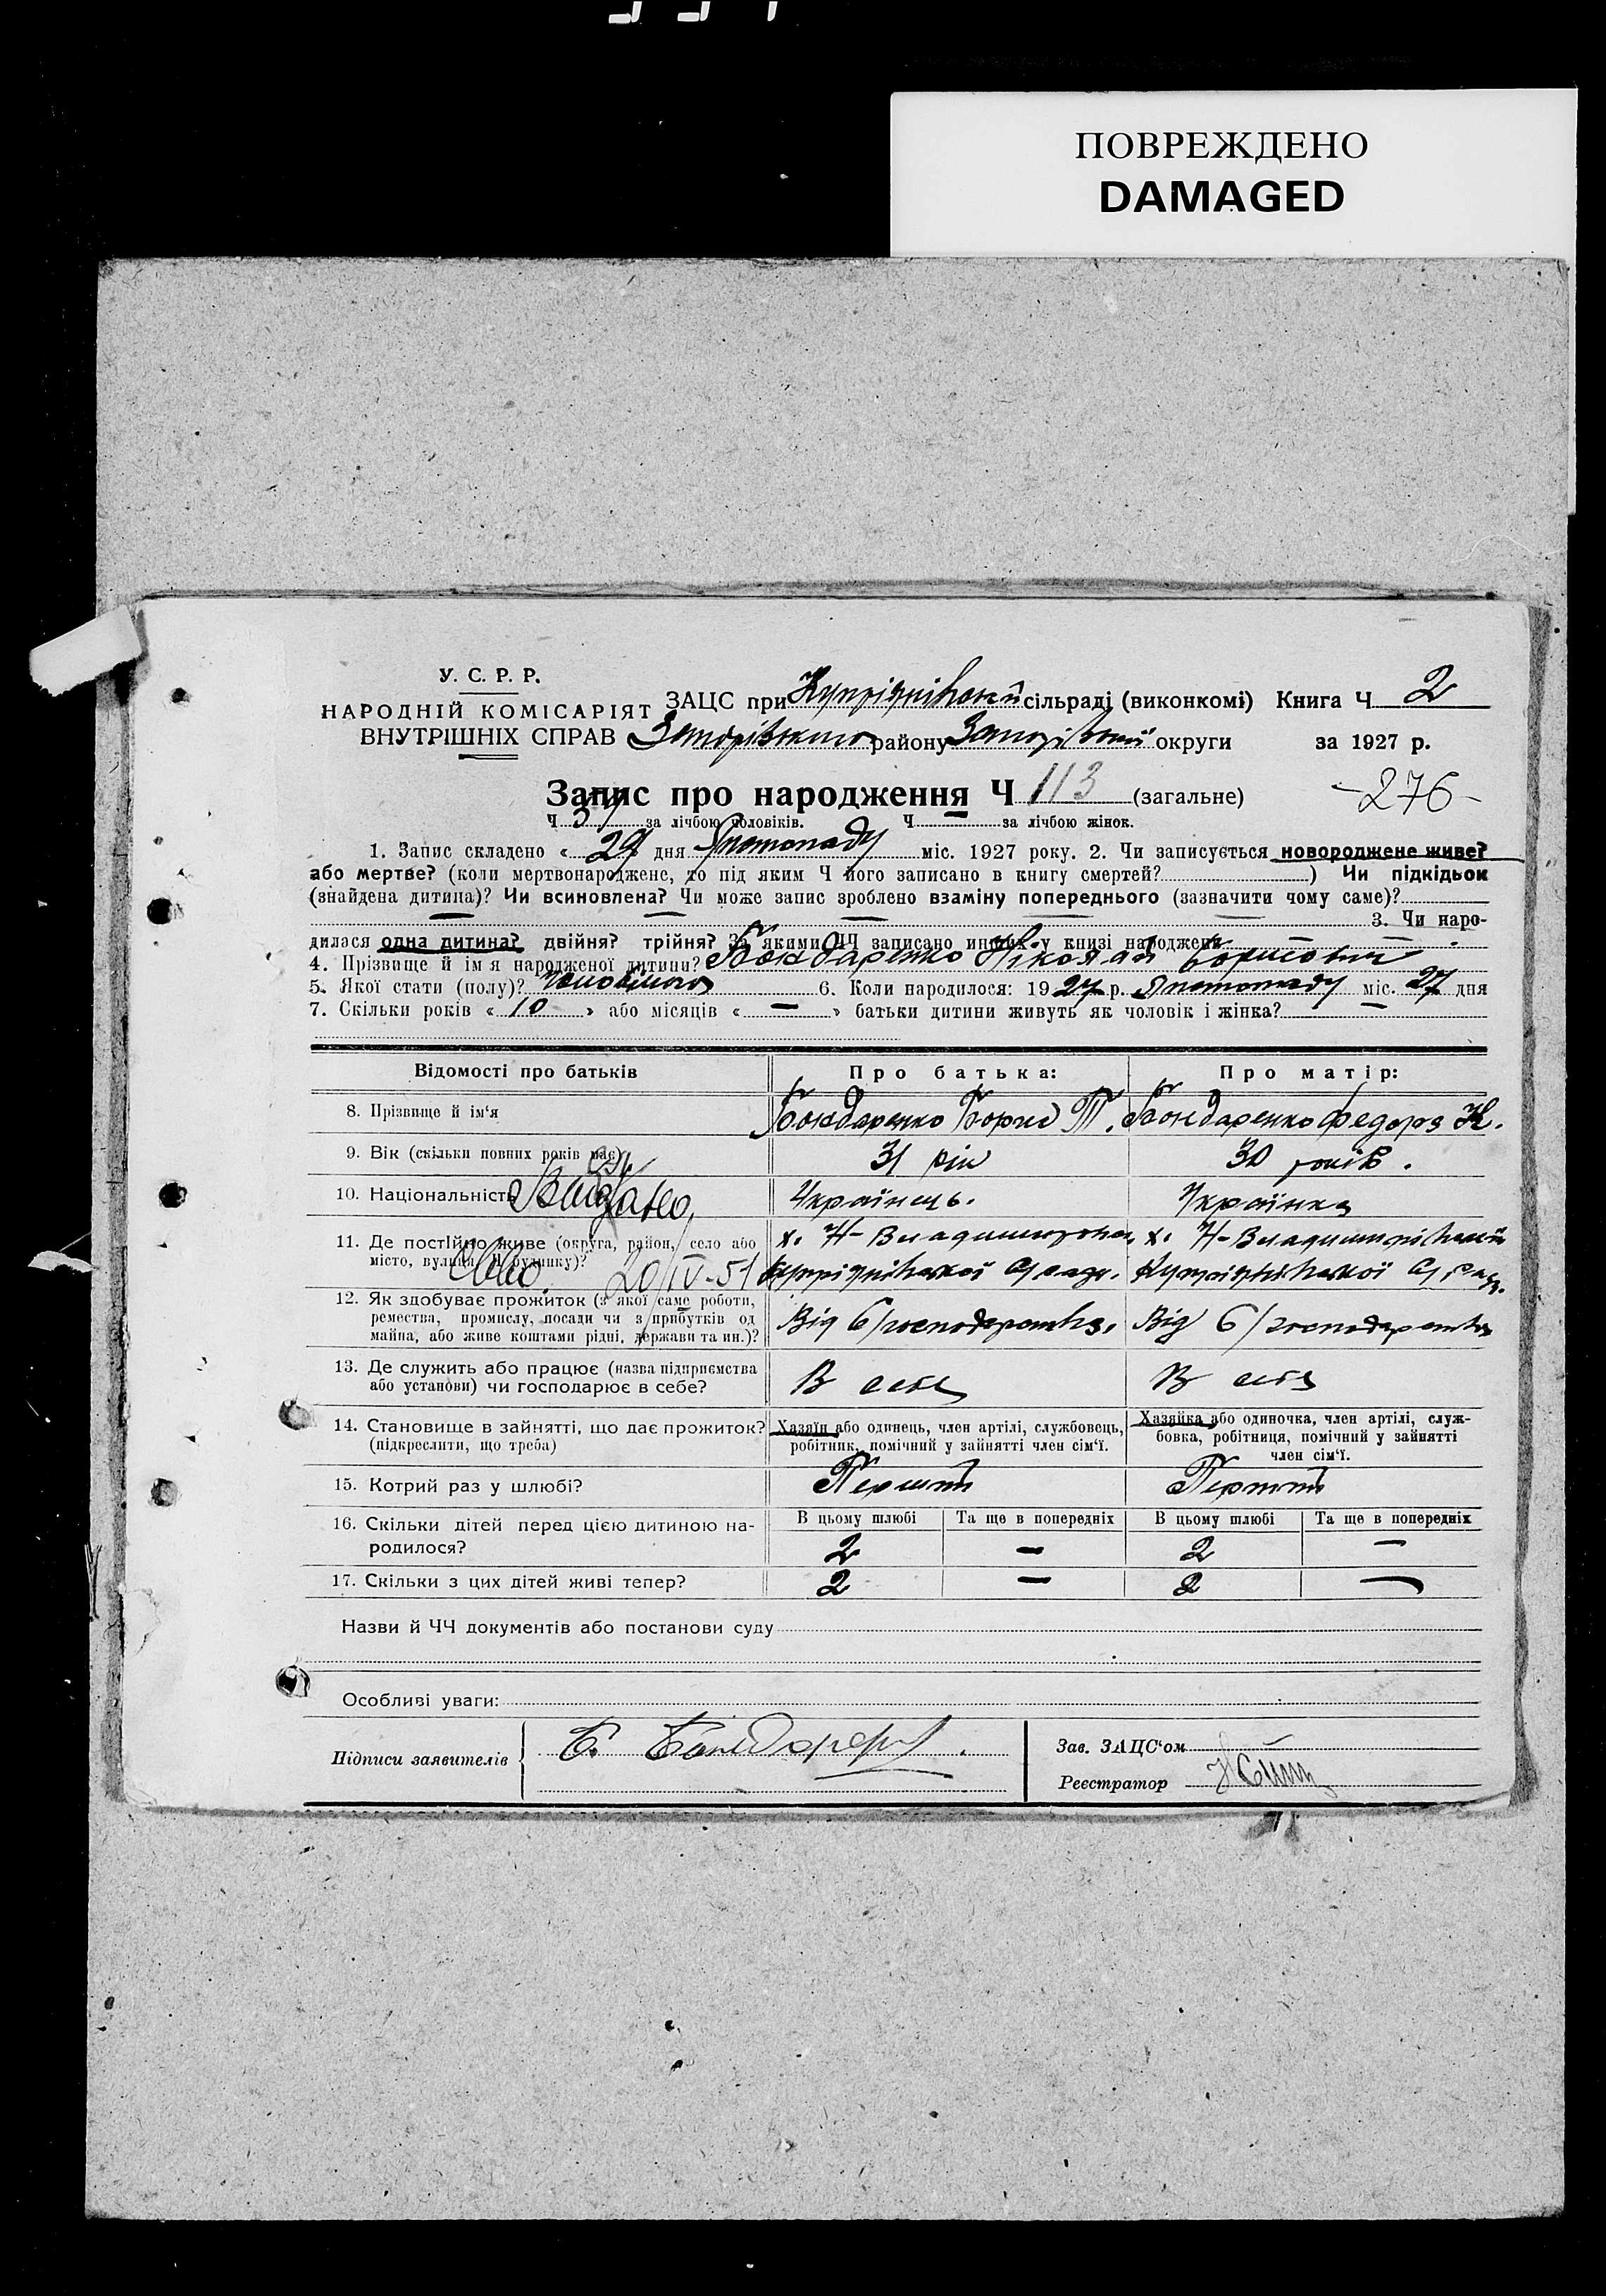 ПОВРЕЖДЕНО
DAMAGED
У. С. Р. Р.
НАРОДНІЙ КОМІСАРІЯТ
ВНУТРІШНІХ СПРАВ
ЗАЦС при Купріянівській сільраді (виконкомі) Книга Ч 2
району округи за 1927 р.
Запис про народження Ч 113 (загальне) -276-
Ч за лічбою чоловіків. Ч — за лічбою жінок.
1. Запис складено « 29 дня Листопаду міс. 1927 року. 2. Чи записується новороджене живе?
або мертве? (коли мертвонароджене, то під яким Ч його записано в книгу смертей? ) Чи підкідьок
(знайдена дитина)? Чи всиновлена? Чи може запис зроблено взаміну попереднього (зазначити чому саме)?
3. Чи наро-
дилася одна дитина? двійня? трійня? За якими ЧЧ записано инших у книзі народжень
4. Прізвище й ім'я народженої дитини? Бондаренко Ніколай Борисович
5. Якої стати (полу)? 6. Коли народилося: 1927 р. Листопаду міс. 27 дня
7. Скільки років « 10 » або місяців « — » батьки дитини живуть як чоловік і жінка? —
Відомості про батьків Про батька: Про матір:
8. Прізвище й ім'я Бондаренко Борис Т. Бондаренко Федора К.
9. Вік (скільки повних років має) 31 рік 30 років.
10. Національність Українець. Українка
Видано
11. Де постійно живе (округа, район, село або
місто, вулиця, Ч будинку)?
х. Н-Владимирівка, х. Н-Владимирівський
Купріянівської С/ради. Купріянівської С/рад.
20/IV-51
12. Як здобуває прожиток (з якої саме роботи,
ремества, промислу, посади чи з прибутків од
майна, або живе коштами рідні, держави та ин.)?
Від С/господарства. Від С/господарства
13. Де служить або працює (назва підприємства
або установи) чи господарює в себе?
В себе В себе
14. Становище в зайнятті, що дає прожиток?
(підкреслити, що треба)
Хазяїн або одинець, член артілі, службовець,
робітник, помічний у зайнятті член сім'ї.
Хазяйка або одиночка, член артілі, служ-
бовка, робітниця, помічний у зайнятті
член сім'ї.
15. Котрий раз у шлюбі? Перший Перший
16. Скільки дітей перед цією дитиною на-
родилося?
В цьому шлюбі Та ще в попередніх В цьому шлюбі Та ще в попередніх
2 — 2 —
17. Скільки з цих дітей живі тепер? 2 — 2 —
Назви й ЧЧ документів або постанови суду
Особливі уваги:
Підписи заявителів Б. Бондарен
Зав. ЗАЦС'ом
Реєстратор